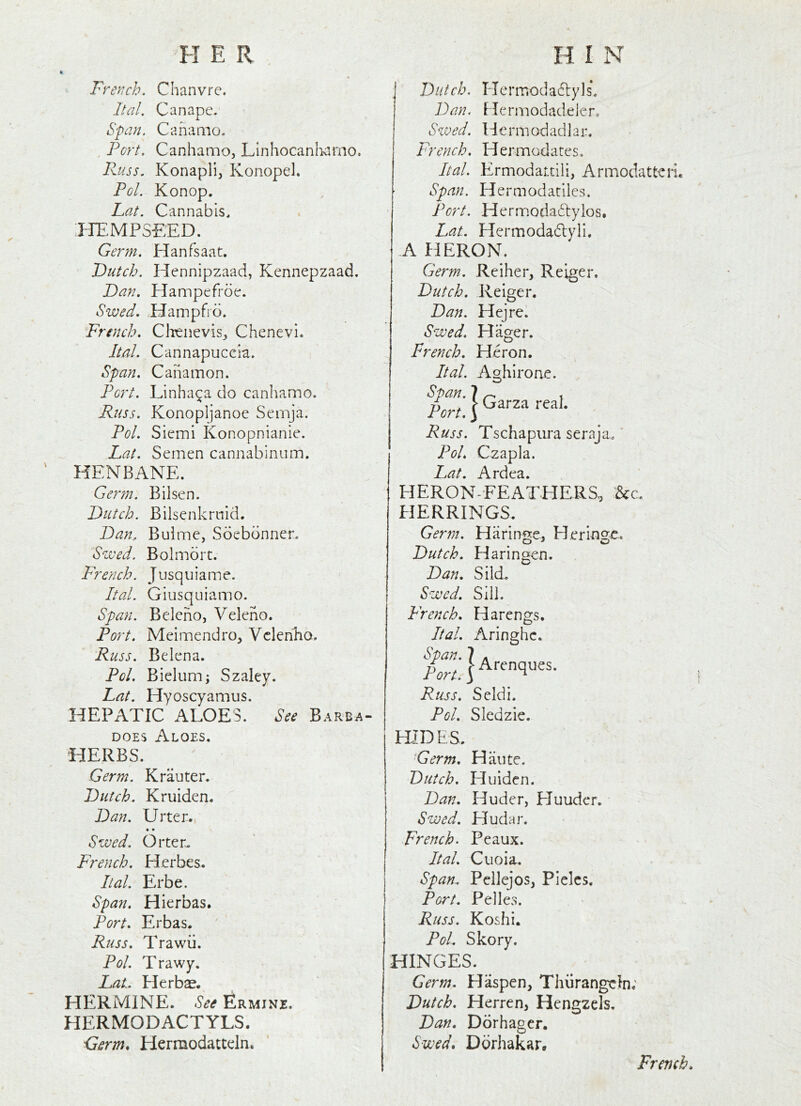 HER
French. Chanvre.
Ital. Canape.
Span. Cañamo.
Port. Canhamo, Linhocanhamo.
Russ. Konapli, Konopel.
Pol. Konop.
Lat. Cannabis.
HEMPSEED.
Germ. Hanfsaat.
Dutch. Hennipzaad, Kennepzaad.
Dan. Hampefröe.
Swed. Hampfrö.
French. Chenevis, Chenevi.
Ital. Cannapuccia.
Span. Cañamon.
Port. Linhaça do canhamo.
Russ. Konopljanoe Semja.
Pol. Siemi Konopnianie.
Lat. Semen cannabinum.
HENBANE.
Germ. Bilsen.
Dutch. Bilsenkruid.
Dan. Bulme, Söebönner.
Swed. Bolmört.
French. Jusquiame.
Ital. Giusquiamo.
Span. Beleño, Veleño.
Port. Meimendro, Velenho.
Russ. Belena.
Pol. Bielum; Szaley.
Lat. Hyoscyamus.
HEPATIC ALOES. See BARBA-
DOES ALOES.
HERBS.
Germ. Kräuter.
Dutch. Kruiden.
Dan. Urter.
Swed. Örter.
French. Herbes.
Ital. Erbe.
Span. Hierbas.
Port. Erbas.
Russ. Trawü.
Pol. Trawy.
Lat. Herbæ.
HERMINE. See ERMINE.
HERMODACTYLS.
Germ. Hermodatteln.
HIN
Dutch. Hermodactyls.
Dan. Hermodadeler.
Swed. Hermodadlar.
French. Hermodates.
Ital. Ermodattili, Armodatteri.
Span. Hermodatiles.
Port. Hermodactylos.
Lat. Hermodactyli.
A HERON.
Germ. Reiher, Reiger.
Dutch. Reiger.
Dan. Hejre.
Swed. Häger.
French. Héron.
Ital. Aghirone.
Span. } Garza real.
Port. }
Russ. Tschapura seraja.
Pol. Czapla.
Lat. Ardea.
HERON-FEATHERS, &c.
HERRINGS.
Germ. Häringe, Heringe.
Dutch. Haringen.
Dan. Sild.
Swed. Sill.
French. Harengs.
Ital. Aringhe.
Span. } Arenques.
Port. }
Russ. Seldi.
Pol. Sledzie.
HIDES.
Germ. Häute.
Dutch. Huiden.
Dan. Huder, Huuder.
Swed. Hudar.
French. Peaux.
Ital. Cuoia.
Span. Pellejos, Pieles.
Port. Pelles.
Russ. Koshi.
Pol. Skory.
HINGES.
Germ. Häspen, Thürangeln.
Dutch. Herren, Hengzels.
Dan. Dörhager.
Swed. Dörhakar.
French.